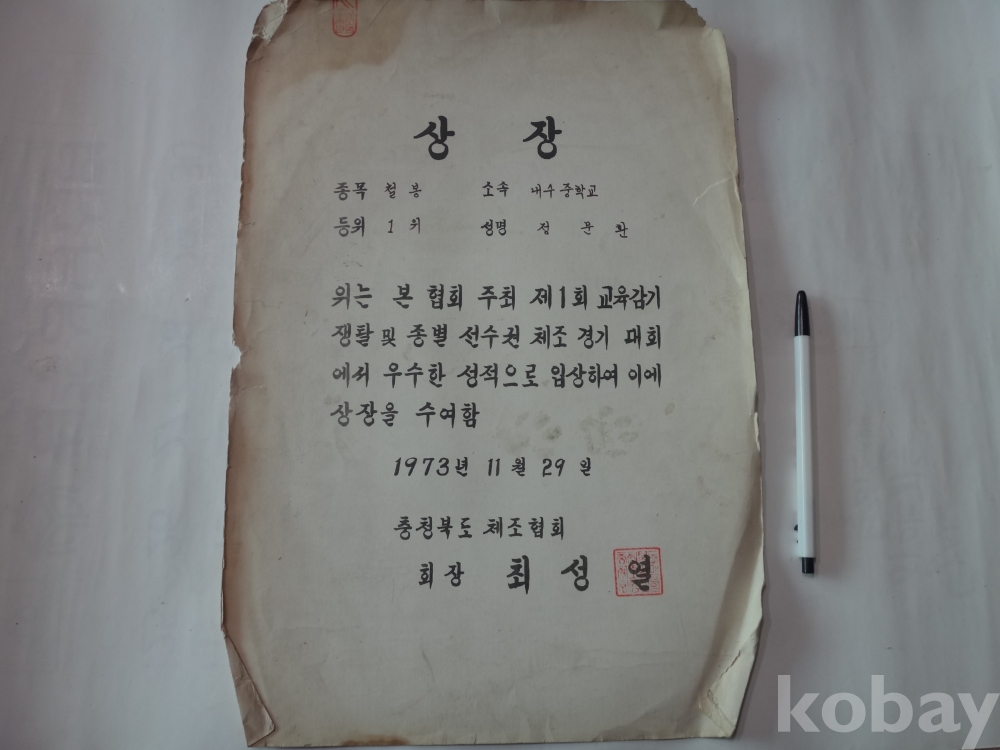 상 장
종목 철봉 소속 대수중학교
등위 1위 성명 정 문 환
위는 본 협회 주최 제1회 교육감기
쟁탈 및 종별 선수권 체조 경기 대회
에서 우수한 성적으로 입상하여 이에
상장을 수여함
1973년 11월 29일
충청북도 체조협회
회장 최 성 열
kobay